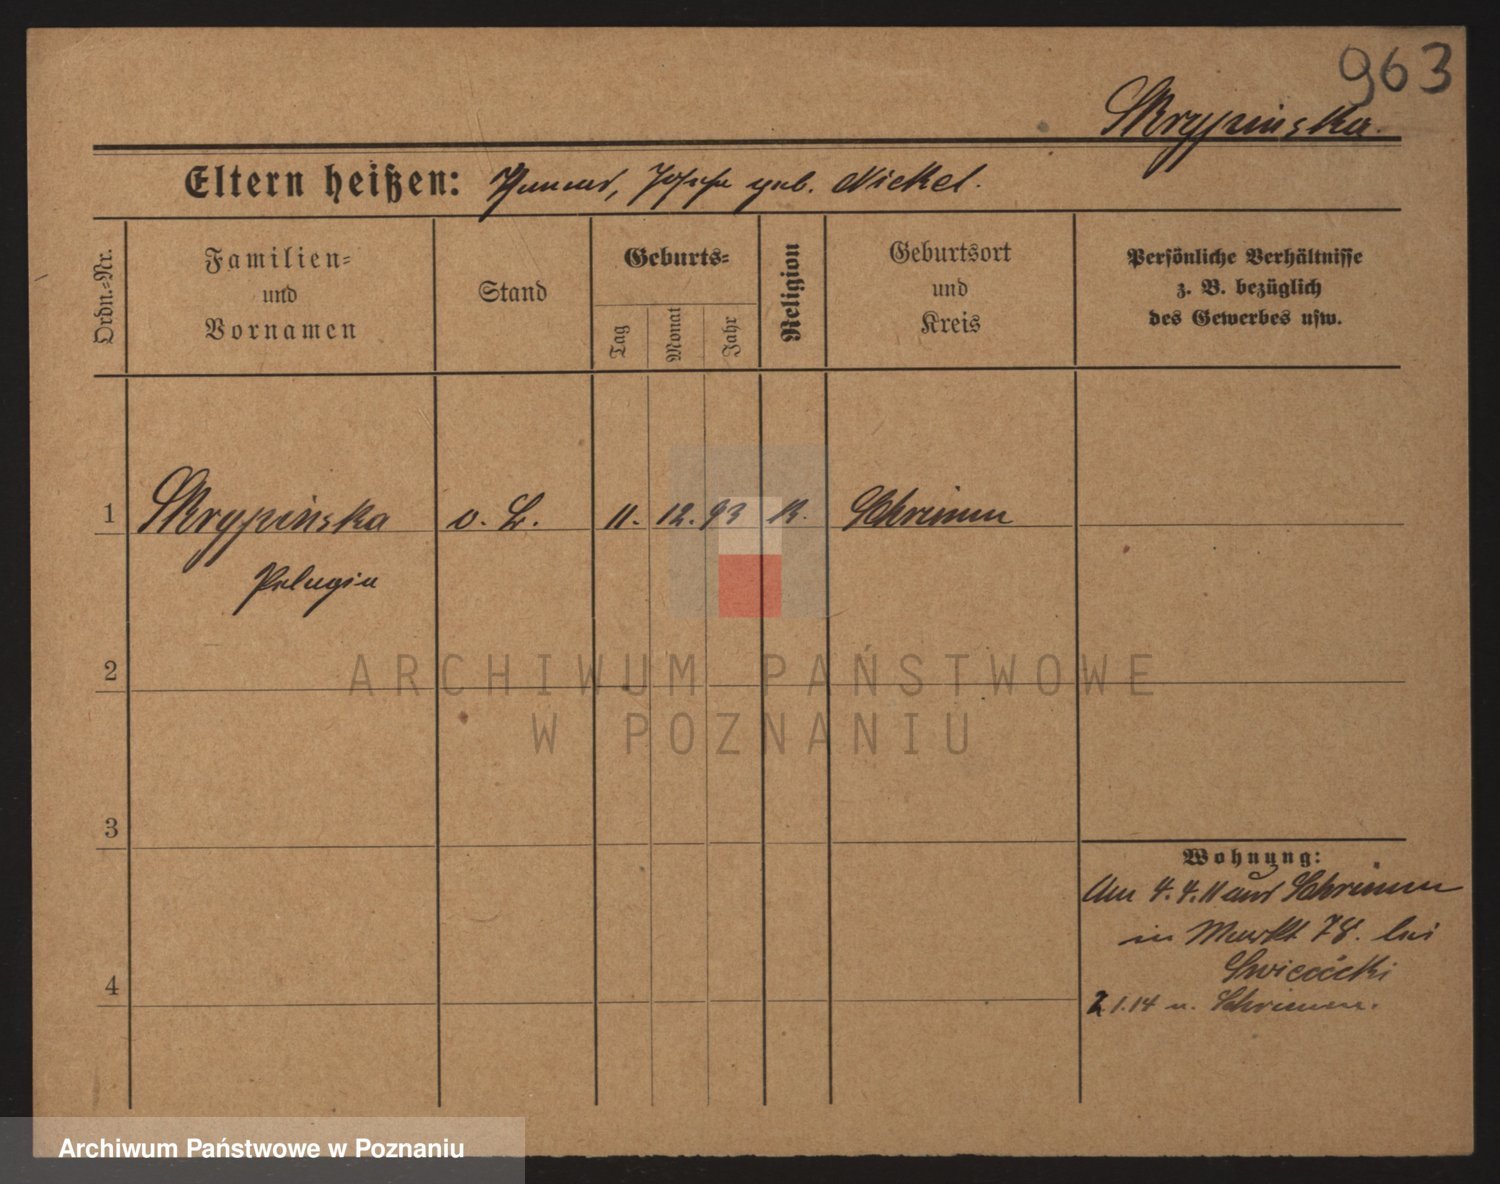 963
Skrypinska.
Eltern heißen: geb. Nickel.
Ordn.-Nr.
Familien-
und
Vornamen
Stand
Geburts-
Tag
Monat
Jahr
Religion
Geburtsort
und
Kreis
Persönliche Verhältnisse
z. B. bezüglich
des Gewerbes usw.
1 Skrypinska o. G. 11. 12. 93 K. Schrimm
Pelagia
2
ARCHIWUM PAŃSTWOWE
W POZNANIU
3
Wohnung:
Am 4.4.11 aus Schrimm
in Markt 78. bei
4
2.1.14 n. Schrimm.
Archiwum Państwowe w Poznaniu